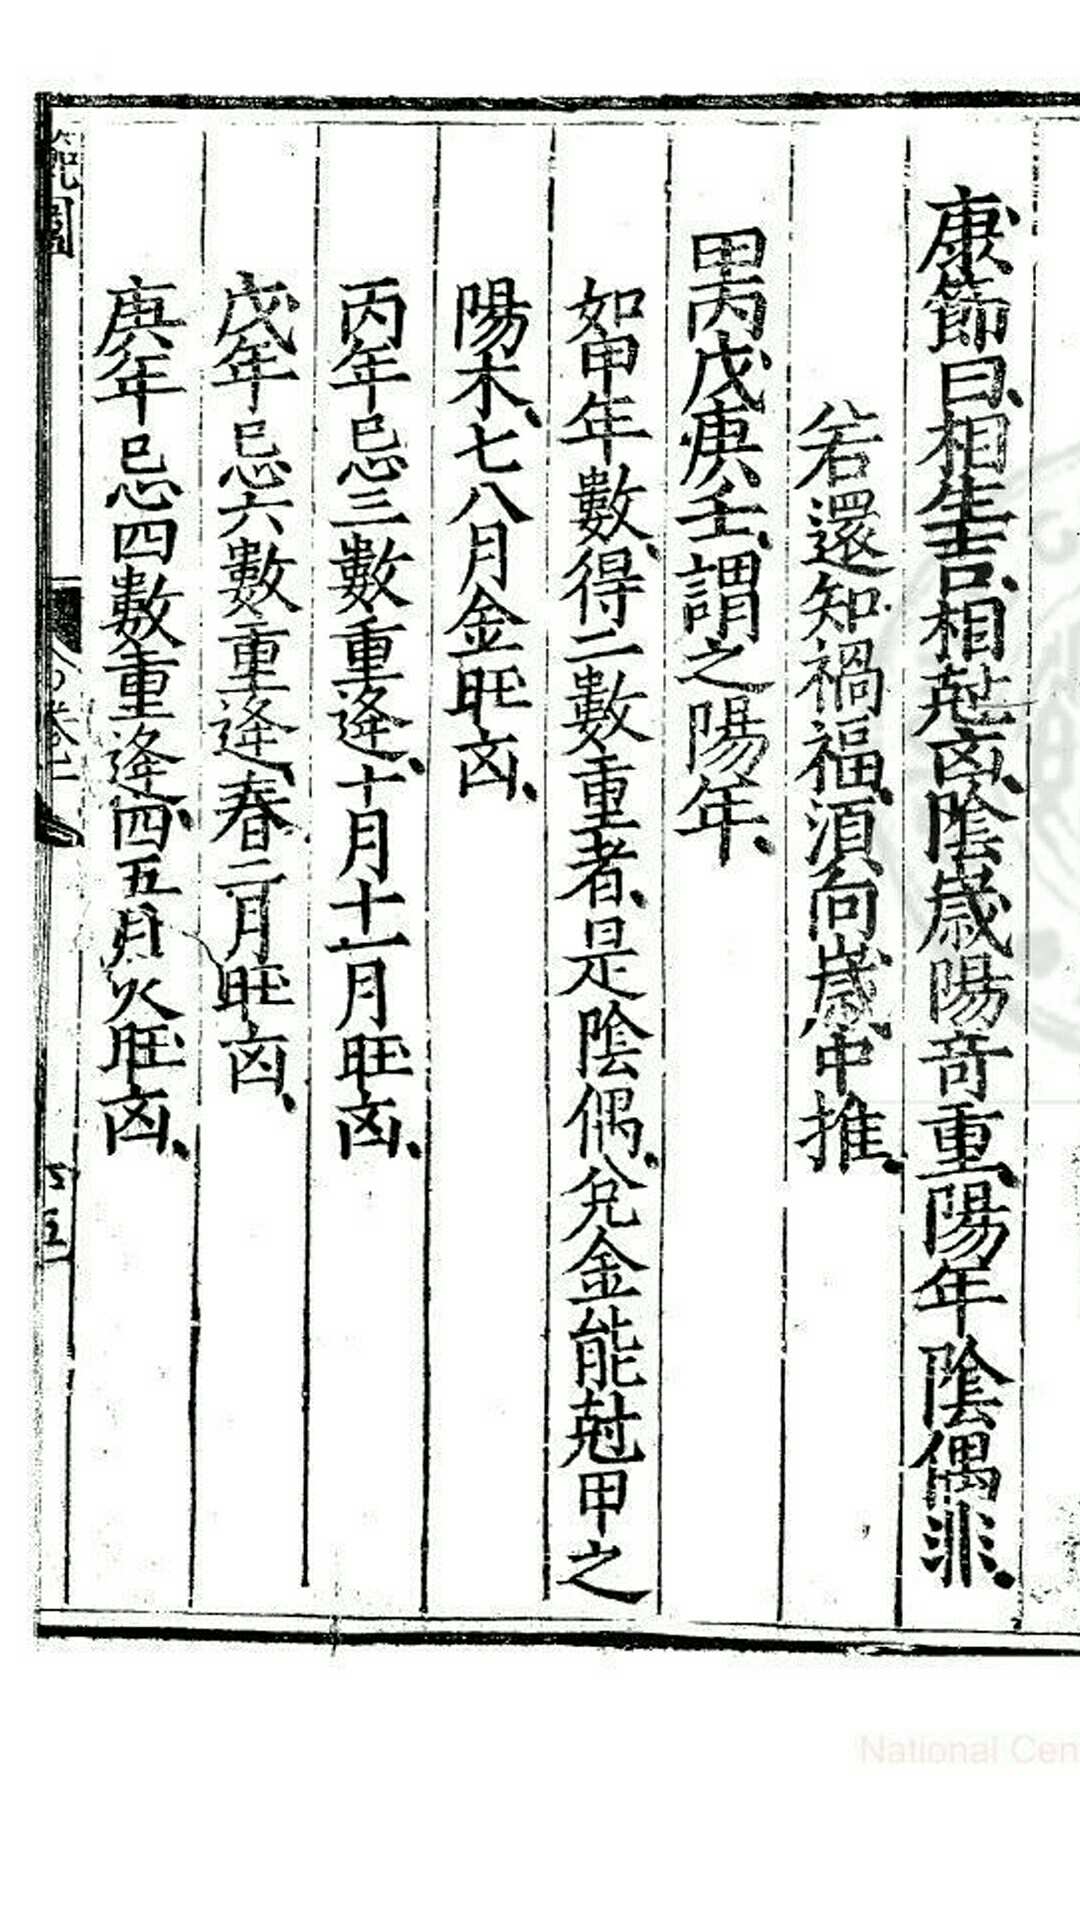 康節曰相生吉相尅凶陰歲陽竒重陽年陰偶非
若還知禍福須向歲中推
甲丙戊庚壬謂之陽年
如甲年數得二數重者是陰偶兌金能尅甲之
陽木七八月金旺凶
丙年忌三數重逄十月十一月旺凶
戊年忌六數重逄春二月旺凶
庚年忌四數重逄四五月火旺凶
範圍
卷二
National Cen